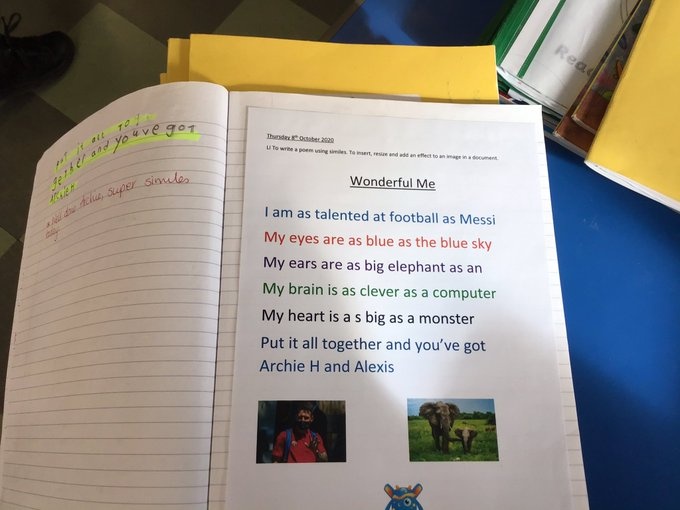 put it all to
gether and youve got
ARCHIE H
Well done Archie, super similes
today.
Thursday 8th October 2020
LI To write a poem using similes. To insert, resize and add an effect to an image in a document.
Wonderful Me
I am as talented at football as Messi
My eyes are as blue as the blue sky
My ears are as big elephant as an
My brain is as clever as a computer
My heart is a s big as a monster
Put it all together and you've got
Archie H and Alexis
Read